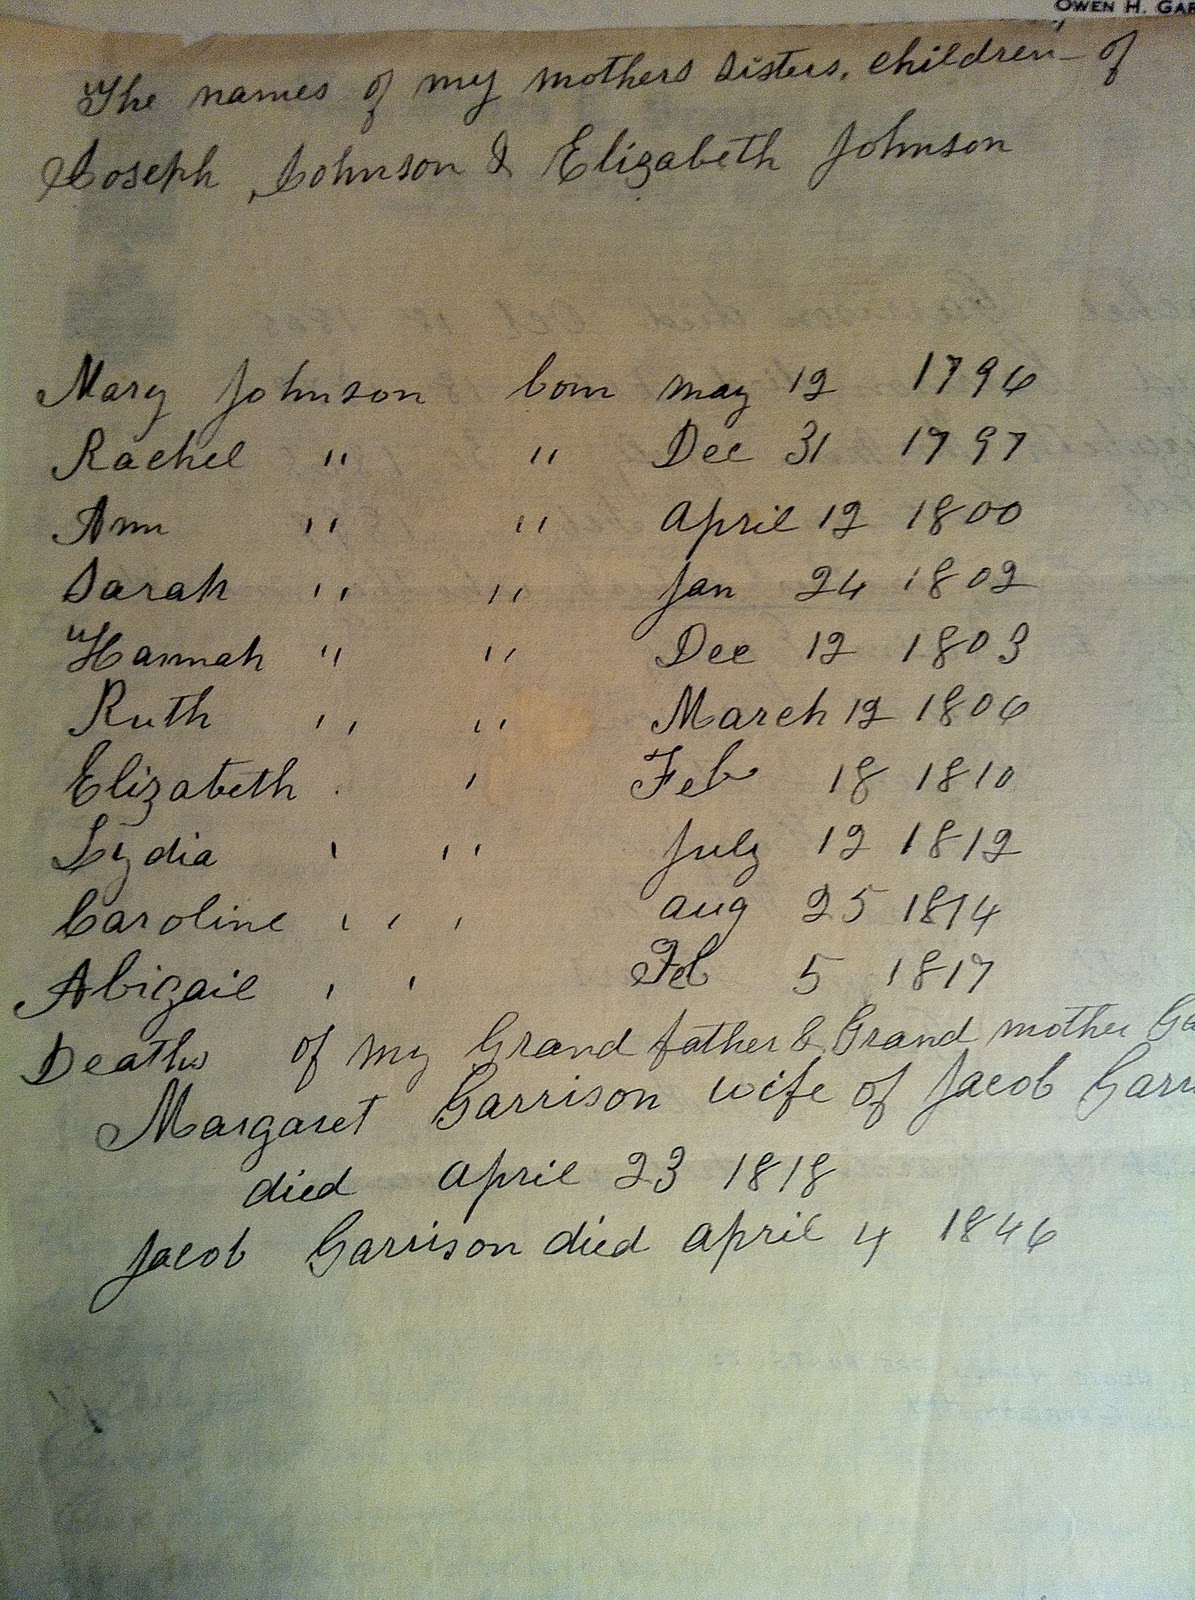 OWEN H. GAR
The names of my mothers sisters, children of
Joseph Johnson & Elizabeth Johnson
Mary Johnson born may 12 1796
Rachel " " Dec 31 1797
Ann " " april 12 1800
Sarah " " Jan 24 1802
Hannah " " Dec 12 1803
Ruth " " March 12 1806
Elizabeth " " Feb 18 1810
Lydia " " July 12 1812
Caroline " " aug 25 1814
Abigail " " Feb 5 1817
Deaths of my Grand father & Grand mother Ga
Margaret Garrison wife of Jacob Garri
died april 23 1818
Jacob Garrison died april 4 1846